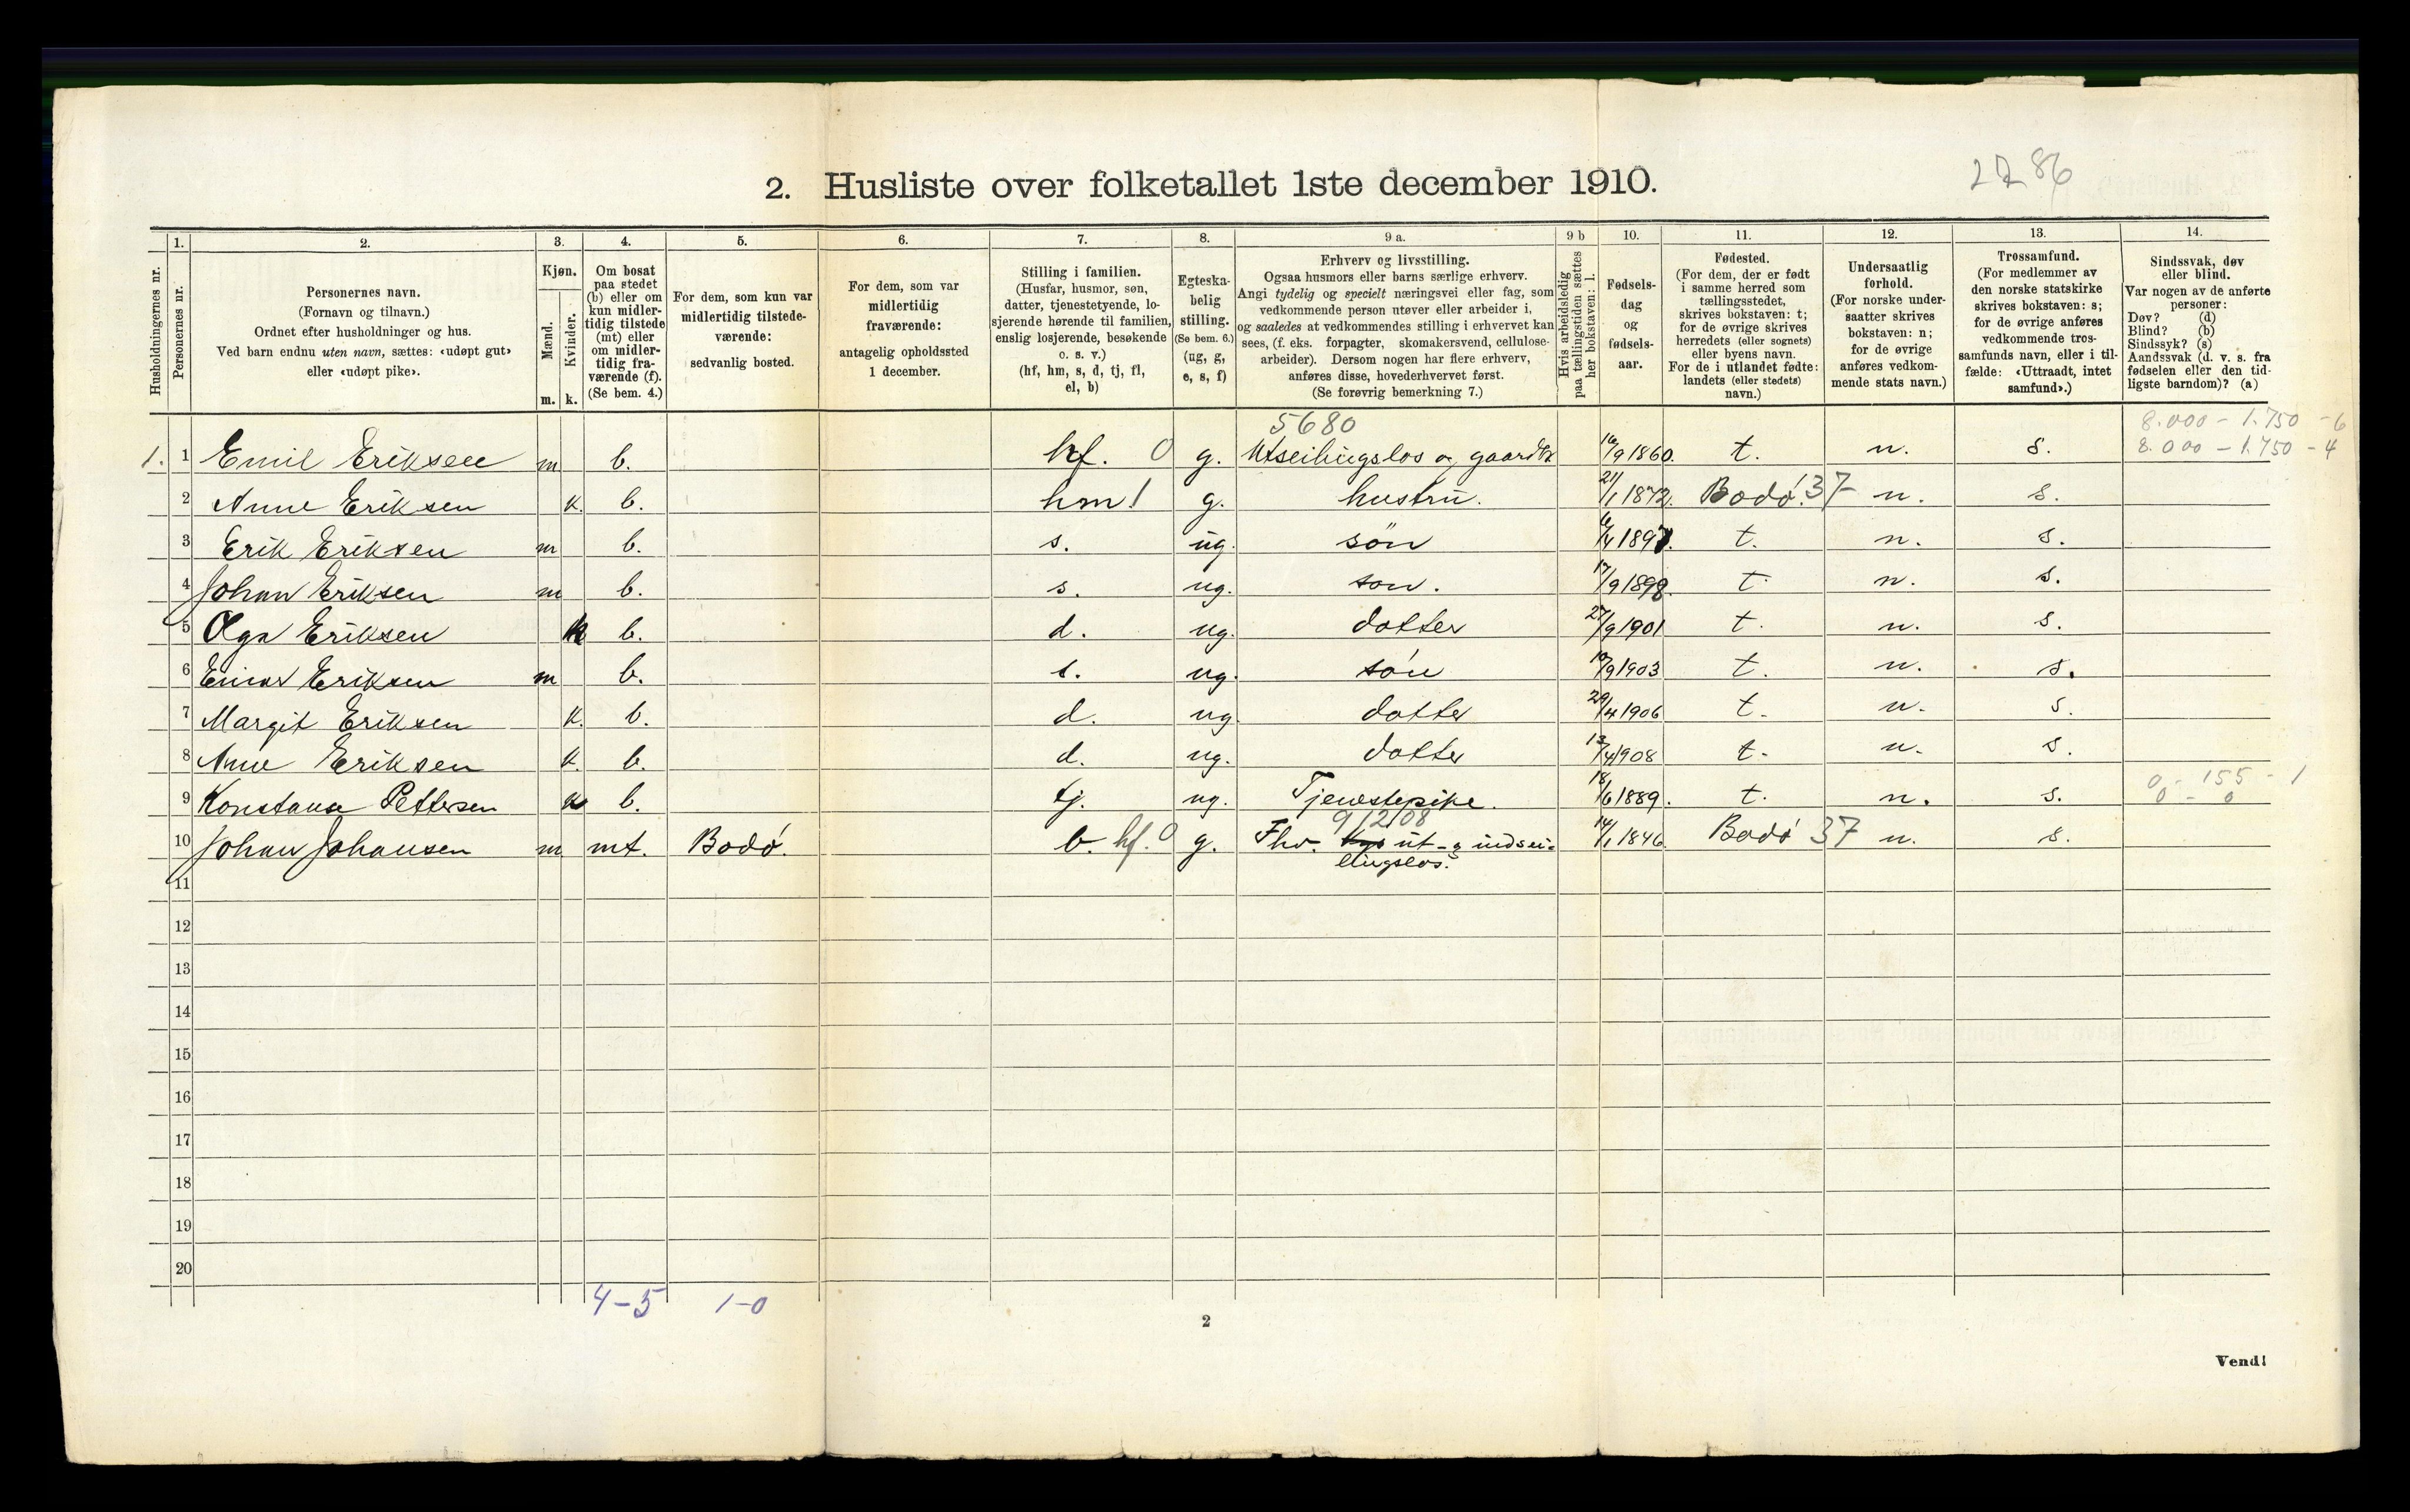 2286
2. Husliste over folketallet 1ste december 1910.
1. 2. 3. 4. 5. 6. 7. 8. 9 a. 9 b 10. 11. 12. 13. 14.
Husholdningernes nr.
Personernes nr.
Personernes navn.
(Fornavn og tilnavn.)
Ordnet efter husholdninger og hus.
Ved barn endnu uten navn, sættes: «udøpt gut»
eller «udøpt pike».
Kjøn.
Mænd.
Kvinder.
m. k.
Om bosat
paa stedet
(b) eller om
kun midler-
tidig tilstede
(mt) eller
om midler-
tidig fra-
værende (f).
(Se bem. 4.)
For dem, som kun var
midlertidig tilstede-
værende:
sedvanlig bosted.
For dem, som var
midlertidig
fraværende:
antagelig opholdssted
1 december.
Stilling i familien.
(Husfar, husmor, søn,
datter, tjenestetyende, lo-
sjerende hørende til familien,
enslig losjerende, besøkende
o. s. v.)
(hf, hm, s, d, tj, fl,
el, b)
Egteska-
belig
stilling.
(Se bem. 6.)
(ug, g,
e, s, f)
Erhverv og livsstilling.
Ogsaa husmors eller barns særlige erhverv.
Angi tydelig og specielt næringsvei eller fag, som
vedkommende person utøver eller arbeider i,
og saaledes at vedkommendes stilling i erhvervet kan
sees, (f. eks. forpagter, skomakersvend, cellulose-
arbeider). Dersom nogen har flere erhverv,
anføres disse, hovederhvervet først.
(Se forøvrig bemerkning 7.)
Hvis arbeidsledig
paa tællingstiden sættes
her bokstaven: l.
Fødsels-
dag
og
fødsels-
aar.
Fødested.
(For dem, der er født
i samme herred som
tællingsstedet,
skrives bokstaven: t;
for de øvrige skrives
herredets (eller sognets)
eller byens navn.
For de i utlandet fødte:
landets (eller stedets)
navn.)
Undersaatlig
forhold.
(For norske under-
saatter skrives
bokstaven: n;
for de øvrige
anføres vedkom-
mende stats navn.)
Trossamfund.
(For medlemmer av
den norske statskirke
skrives bokstaven: s;
for de øvrige anføres
vedkommende tros-
samfunds navn, eller i til-
fælde: «Uttraadt, intet
samfund».)
Sindssvak, døv
eller blind.
Var nogen av de anførte
personer:
Døv? (d)
Blind? (b)
Sindssyk? (s)
Aandssvak (d. v. s. fra
fødselen eller den tid-
ligste barndom)? (a)
5680 8.000 - 1.750 - 6
1. 1 Emil Eriksen m b. hf. 0 g. Utseilingslos og gaardbr 16/9 1860. t. n. s. 8.000 - 1.750 - 4
2 Anne Eriksen k. b. hm 1 g. hustru. 21/1 1872. Bodø. 37 n. s.
3 Erik Eriksen m b. s. ug. søn 6/4 1897. t. n. s.
4 Johan Eriksen m b. s. ug. søn. 17/9 1898. t. n. s.
5 Olga Eriksen k b. d. ug. datter 27/9 1901 t. n. s.
6 Einar Eriksen m b. s. ug. søn 10/9 1903 t. n. s.
7 Margit Eriksen k. b. d. ug. datter 29/4 1906 t. n. s.
8 Anne Eriksen k. b. d. ug. datter 13/4 1908 t. n. s.
9 Konstanse Pettersen k b. tj. ug. Tjenestepike. 18/6 1889. t. n. s. 0 - 155 - 1
0 - 0
9/2/08
10 Johan Johansen m mt. Bodø. b. hf. 0 g. Fhv. ut- og indsei-
lingslos. 14/1 1846. Bodø 37 n. s.
11
12
13
14
15
16
17
18
19
20
4-5 1-0
2
Vend!